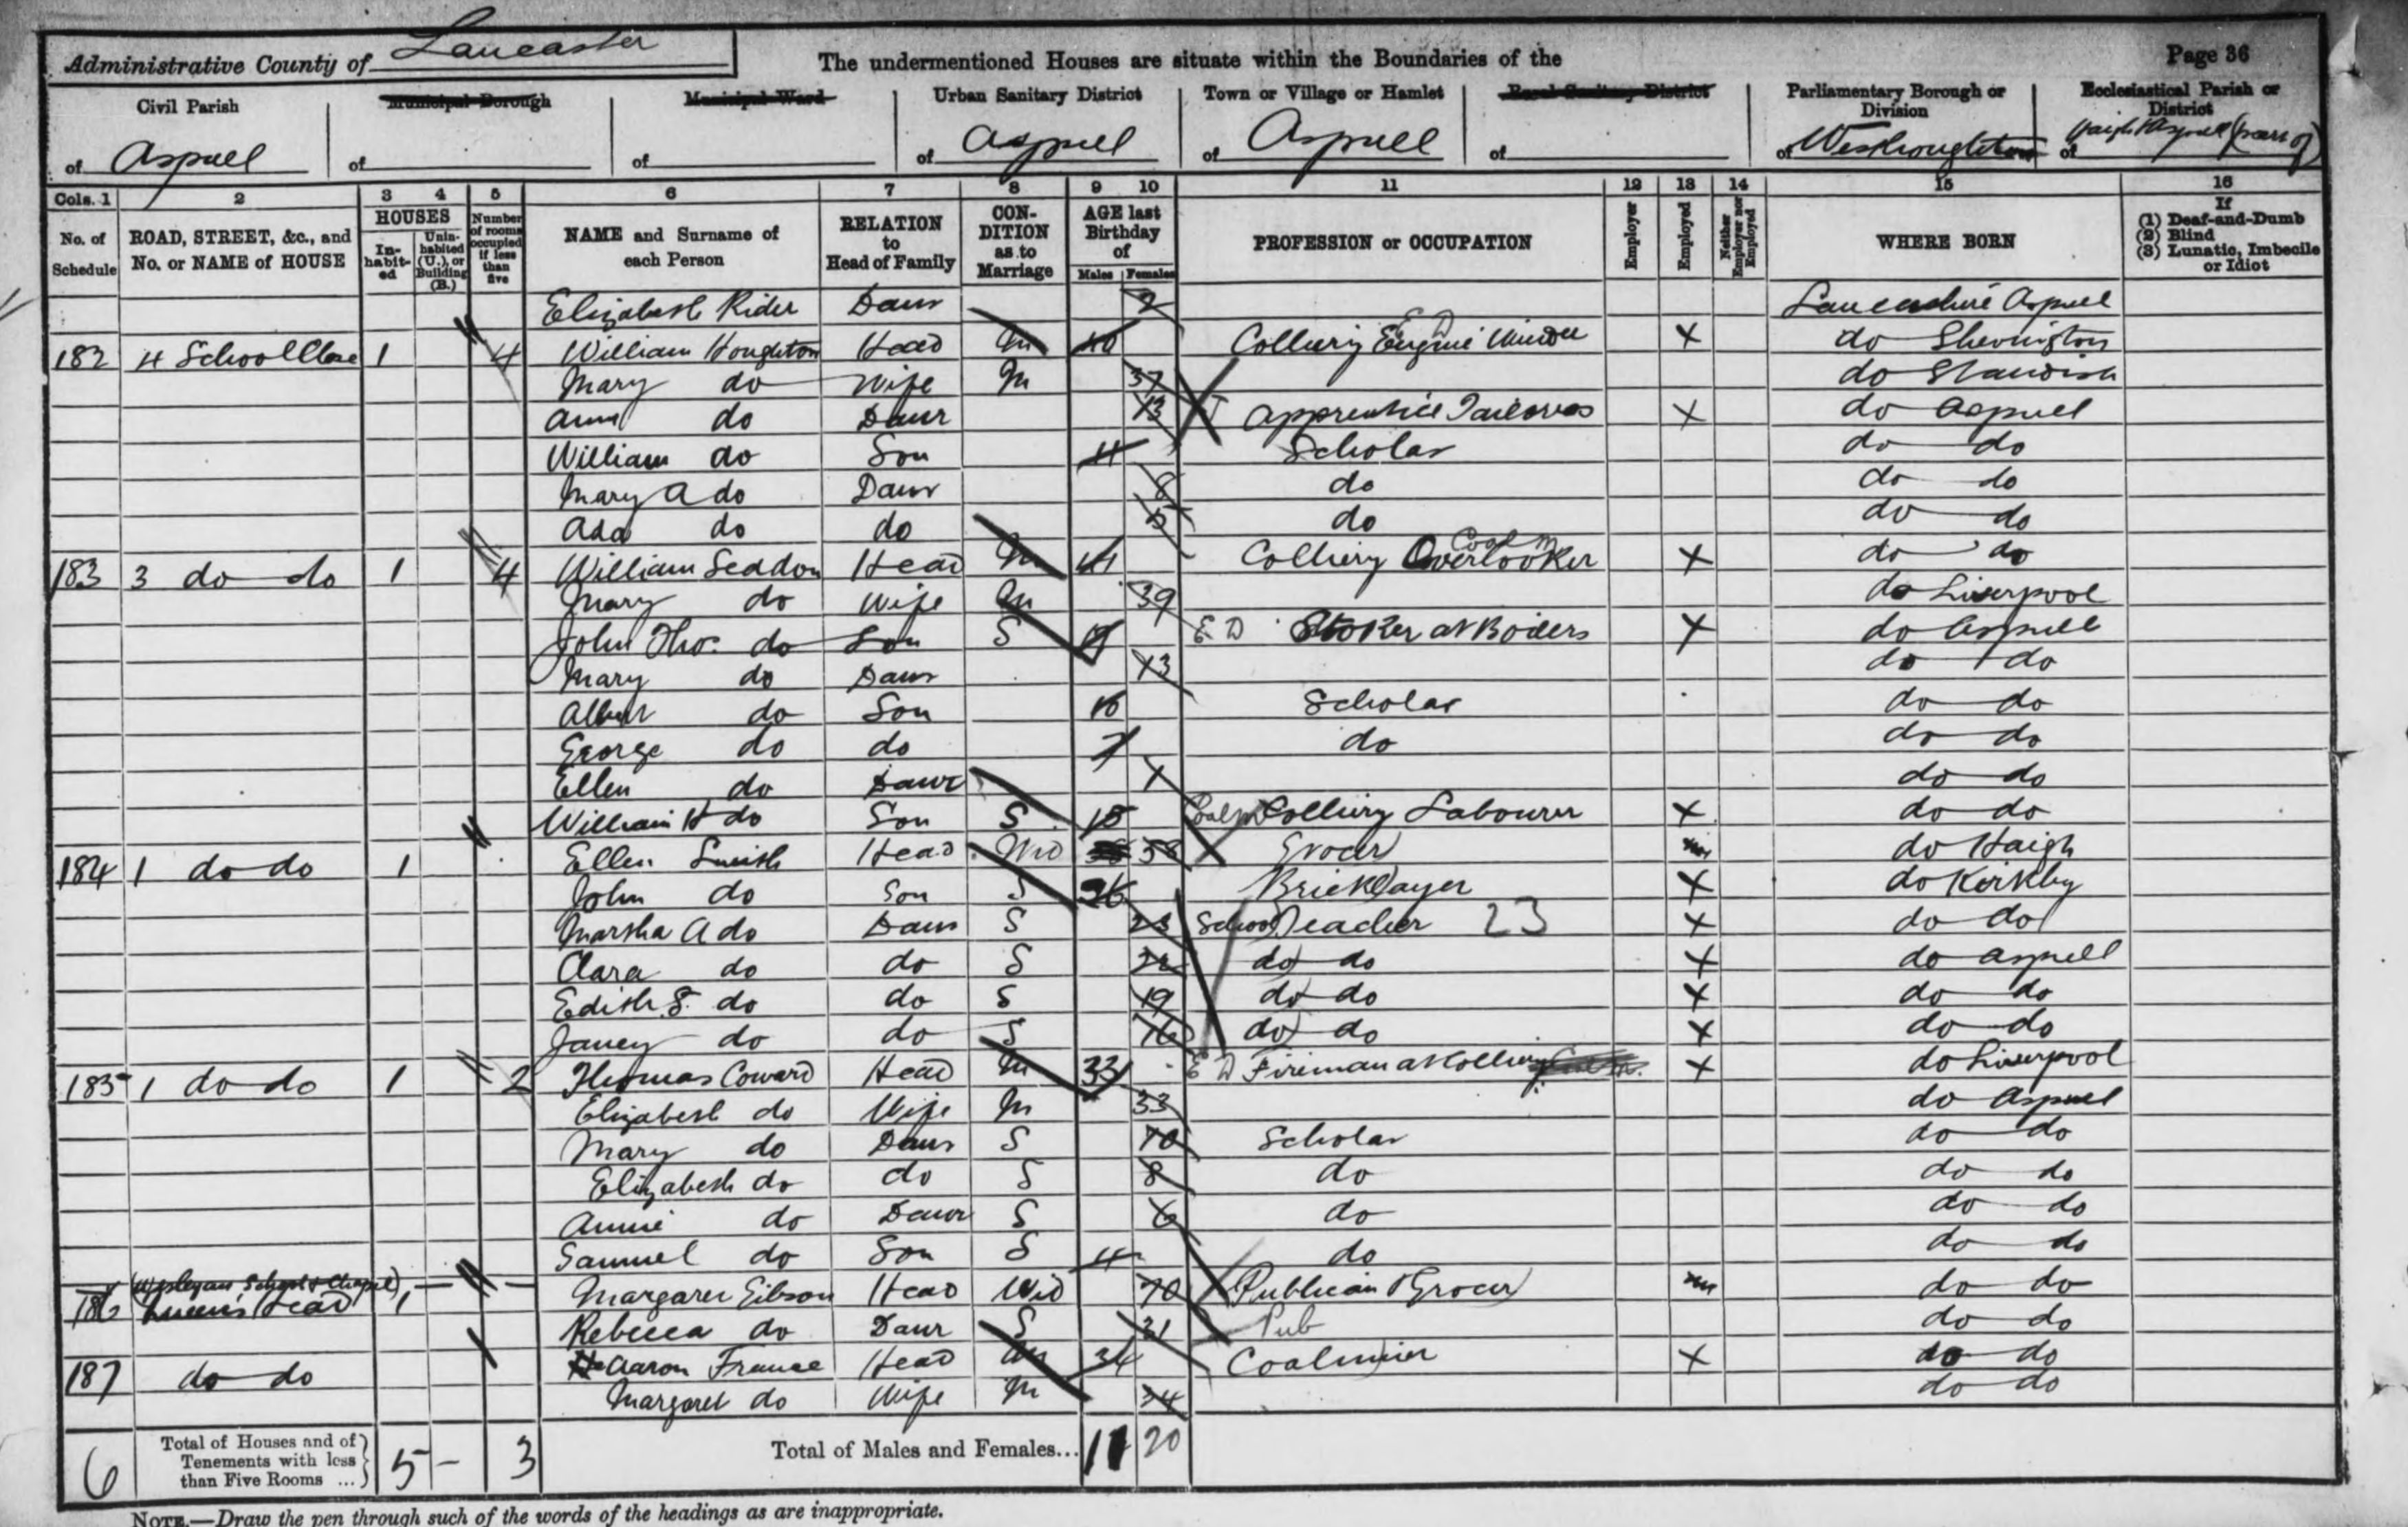 Administrative County of Lancaster
The undermentioned Houses are situate within the Boundaries of the
Page 36
Civil Parish of Aspull
Municipal Borough of
Municipal Ward of
Urban Sanitary District of Aspull
Town or Village or Hamlet of Aspull
Rural Sanitary District of
Parliamentary Borough or Division of Westhoughton
Ecclesiastical Parish or District of Haigh & Aspull (part of)
Cols. 1 2 3 4 5 6 7 8 9 10 11 12 13 14 15 16
No. of Schedule
ROAD, STREET, &c., and No. or NAME of HOUSE
HOUSES
In-habit-ed
Unin-habited (U.), or Building (B.)
Number of rooms occupied if less than five
NAME and Surname of each Person
RELATION to Head of Family
CON-DITION as to Marriage
AGE last Birthday of
Males Females
PROFESSION or OCCUPATION
Employer
Employed
Neither Employer nor Employed
WHERE BORN
If (1) Deaf-and-Dumb (2) Blind (3) Lunatic, Imbecile or Idiot
Elizabeth Rider Daur 2 Lancashire Aspull
182 4 School Close 1 4 William Houghton Head M 40 Colliery Engine Winder E D X do Shevington
Mary do Wife M 37 do Standish
Ann do Daur 13 Apprentice Tailoress X do Aspull
William do Son 11 Scholar do do
Mary A do Daur 8 do do do
Ada do do 5 do do do
183 3 do do 1 4 William Seddon Head M 41 Colliery Overlooker Coal m X do do
Mary do Wife M 39 do Liverpool
John Tho. do Son S E D Stoker at Boilers X do Aspull
Mary do Daur 13 do do
Albert do Son 10 Scholar do do
George do do 7 do do do
Ellen do Daur 1 do do
William H do Son S 18 Coal m Colliery Labourer X do do
184 1 do do 1 Ellen Smith Head Wid 58 Grocer do Haigh
John do Son S 26 Bricklayer X do Kirkby
Martha A do Daur S 23 School Teacher 23 X do do
Clara do do S do do X do Aspull
Edith S. do do S 19 do do X do do
Janey do do S 16 do do X do do
185 1 do do 1 2 Thomas Coward Head M 33 E D Fireman at Colliery X do Liverpool
Elizabeth do Wife M 33 do Aspull
Mary do Daur S 10 Scholar do do
Elizabeth do do S 8 do do do
Annie do Daur S 6 do do do
Samuel do Son S 4 do do do
(Wesleyan School & Chapel)
186 Queens Head 1 Margaret Gibson Head Wid 70 Publican & Grocer do do
Rebecca do Daur S 31 Pub do do
187 do do Aaron France Head M 34 Coalminer X do do
Margaret do Wife M 34 do do
6 Total of Houses and of Tenements with less than Five Rooms ... 5 – 3 Total of Males and Females... 11 20
NOTE.—Draw the pen through such of the words of the headings as are inappropriate.